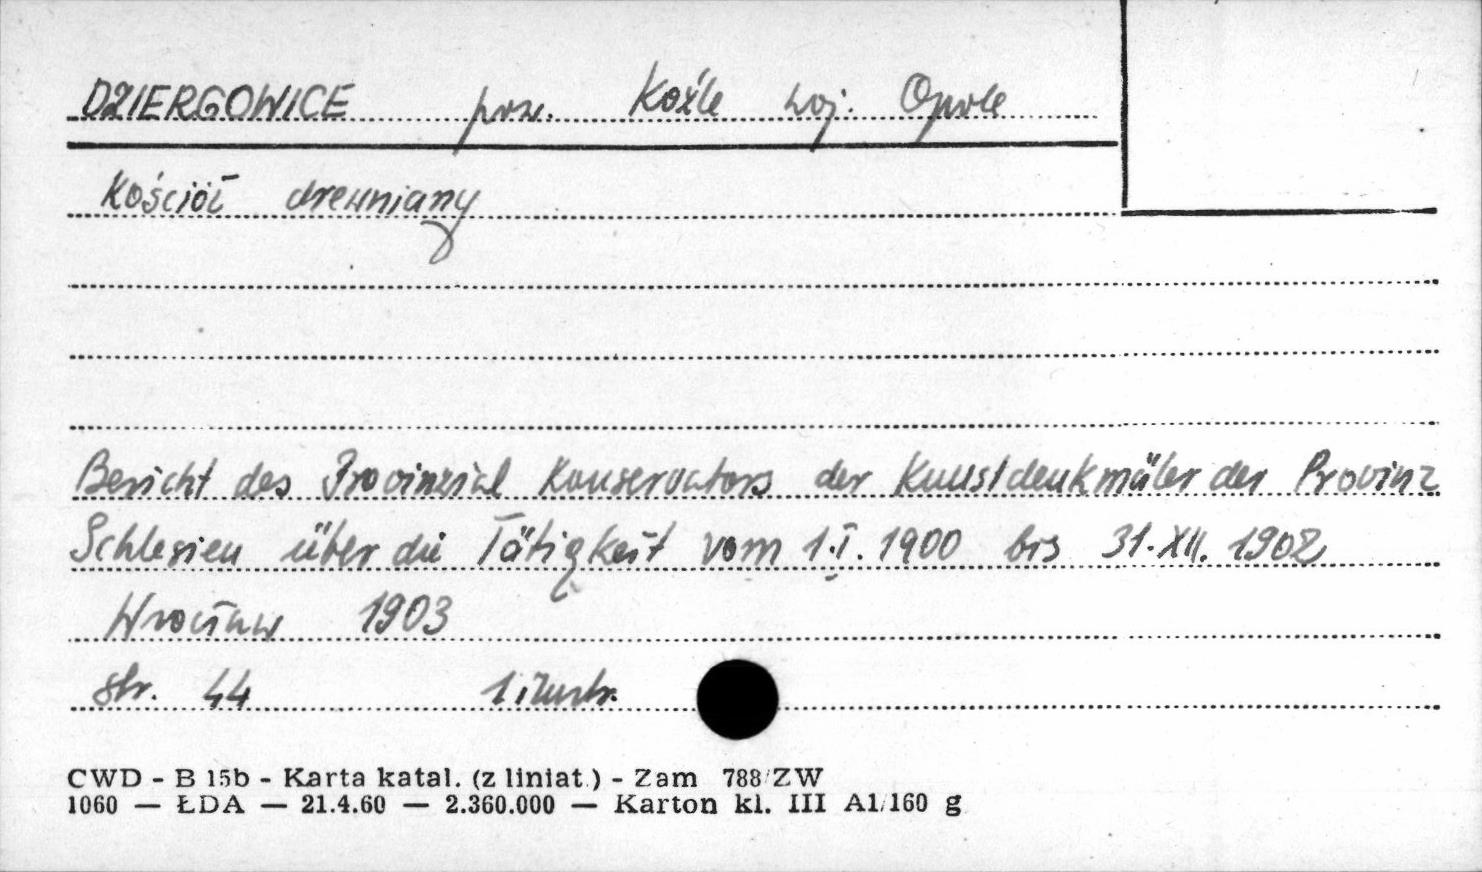 DZIERGOWICE pow. Koźle woj. Opole
Kościół drewniany
Bericht des Provinzial Konservators der Kunstdenkmäler der Provinz
Schlesien über die Tätigkeit vom 1.I. 1900 bis 31.XII. 1902
Wrocław 1903
str. 44 1 ilustr.
CWD - B 15b - Karta katal. (z liniat.) - Zam 788/ZW
1060 — ŁDA — 21.4.60 — 2.360.000 — Karton kl. III A1/160 g